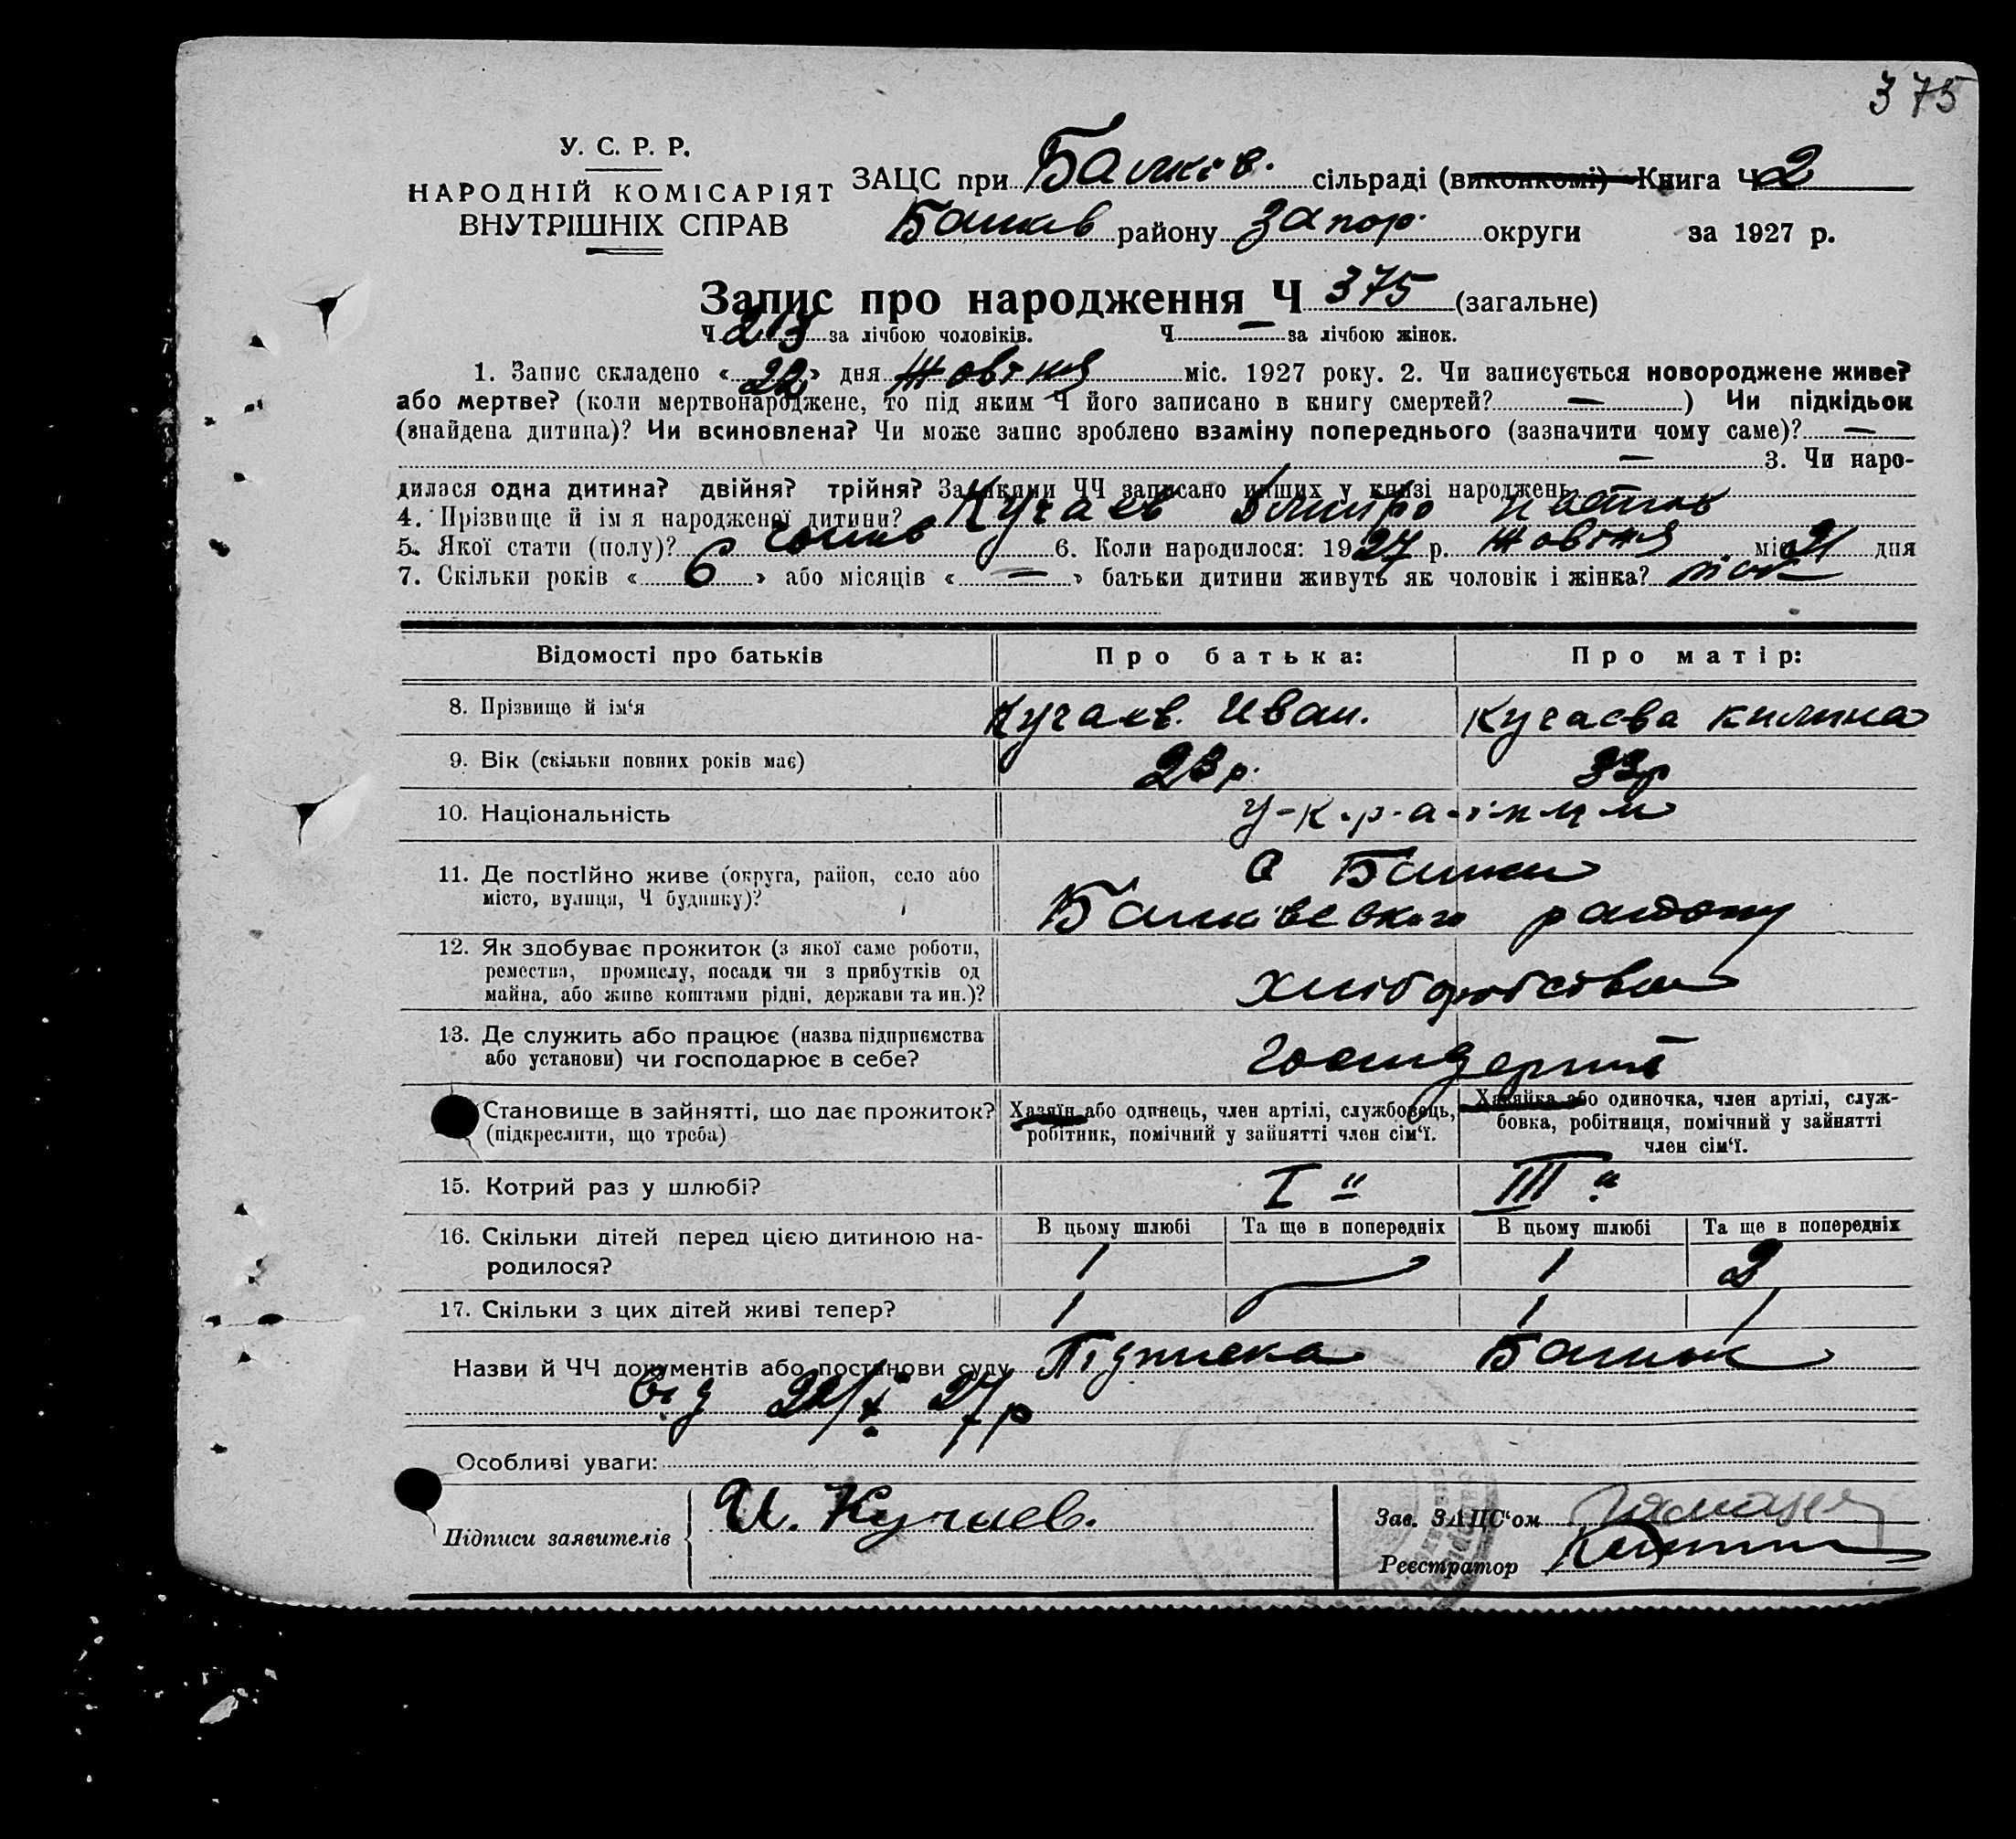 375
У. С. Р. Р.
НАРОДНІЙ КОМІСАРІЯТ
ВНУТРІШНІХ СПРАВ
ЗАЦС при Балків. сільраді (виконкомі) Книга Ч 2
Балків району Запор. округи за 1927 р.
Запис про народження Ч 375 (загальне)
Ч 213 за лічбою чоловіків. Ч — за лічбою жінок.
1. Запис складено «22» дня Жовтня міс. 1927 року. 2. Чи записується новороджене живе?
або мертве? (коли мертвонароджене, то під яким Ч його записано в книгу смертей? —) Чи підкідьок
(знайдена дитина)? Чи всиновлена? Чи може запис зроблено взаміну попереднього (зазначити чому саме)? —
— 3. Чи наро-
дилася одна дитина? двійня? трійня? За якими ЧЧ записано инших у книзі народжень
4. Прізвище й ім'я народженої дитини? Кучаев Дмитро
5. Якої стати (полу)? чолов 6. Коли народилося: 1927 р. Жовтня міс. 21 дня
7. Скільки років «6» або місяців «—» батьки дитини живуть як чоловік і жінка?
Відомості про батьків Про батька: Про матір:
8. Прізвище й ім'я Кучаев. Иван. Кучаєва Килина
9. Вік (скільки повних років має) 23 р. 33р
10. Національність у-к-р-а-ї-н-ц-и
11. Де постійно живе (округа, район, село або С Балки
місто, вулиця, Ч будинку)? Балківського району
12. Як здобуває прожиток (з якої саме роботи,
ремества, промислу, посади чи з прибутків од
майна, або живе коштами рідні, держави та ин.)? хліборобство
13. Де служить або працює (назва підприємства
або установи) чи господарює в себе?
Становище в зайнятті, що дає прожиток? Хазяїн або одинець, член артілі, службовець, Хазяйка або одиночка, член артілі, служ-
(підкреслити, що треба) робітник, помічний у зайнятті член сім'ї. бовка, робітниця, помічний у зайнятті
член сім'ї.
15. Котрий раз у шлюбі? I " III "
16. Скільки дітей перед цією дитиною на- В цьому шлюбі Та ще в попередніх В цьому шлюбі Та ще в попередніх
родилося? 1 1 2
17. Скільки з цих дітей живі тепер? 1 1 1
Назви й ЧЧ документів або постанови суду Підписка
від 22/X 27р
Особливі уваги:
Підписи заявителів И. Кучаев.
Зав. ЗАЦС'ом
Реєстратор